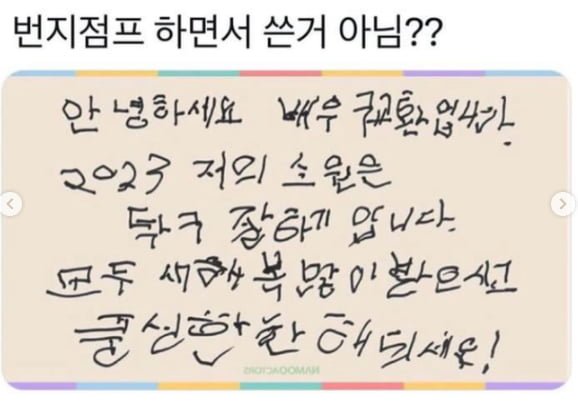 번지점프 하면서 쓴거 아님??
안녕하세요 배우 구교환입니다.
2023 저의 소원은
탁구 잘하기 입니다.
모두 새해 복 많이 받으시고
쿨 섹시한 한 해 되세요!
NAMOOACTORS